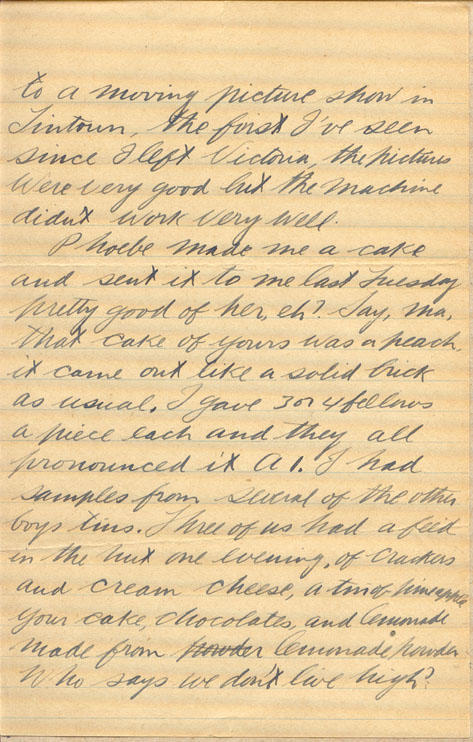 to a moving picture show in
Tintown, the first I've seen
since I left Victoria, the pictures
were very good but the machine
didn't work very well.
Phoebe made me a cake
and sent it to me last Tuesday
pretty good of her, eh? Say, ma,
that cake of yours was a peach
it came out like a solid brick
as usual. I gave 3 or 4 fellows
a piece each and they all
pronounced it A1. I had
samples from several of the other
boys tins. Three of us had a feed
in the hut one evening, of crackers
and cream cheese, a tin of pineapple
your cake, chocolates, and lemonade
made from powder lemonade powder.
Who says we don't live high?